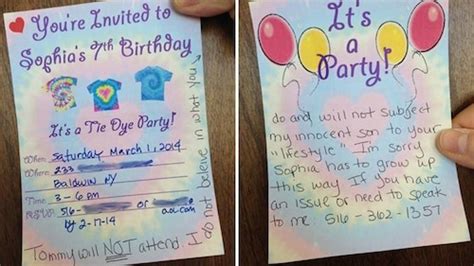 You're Invited to
Sophia's 7th Birthday
It's a Tie Dye Party!
When: Saturday March 1, 2014
Where: 233
Baldwin NY
Time: 3 - 6 pm
RSVP: 516- or aol.com
by 2-17-14
Tommy will NOT attend. I do not beleive in what you
It's
a
Party!
do and will not subject
my innocent son to your
"lifestyle." I'm sorry
Sophia has to grow up
this way. If you have
an issue or need to speak
to me: 516-362-1357